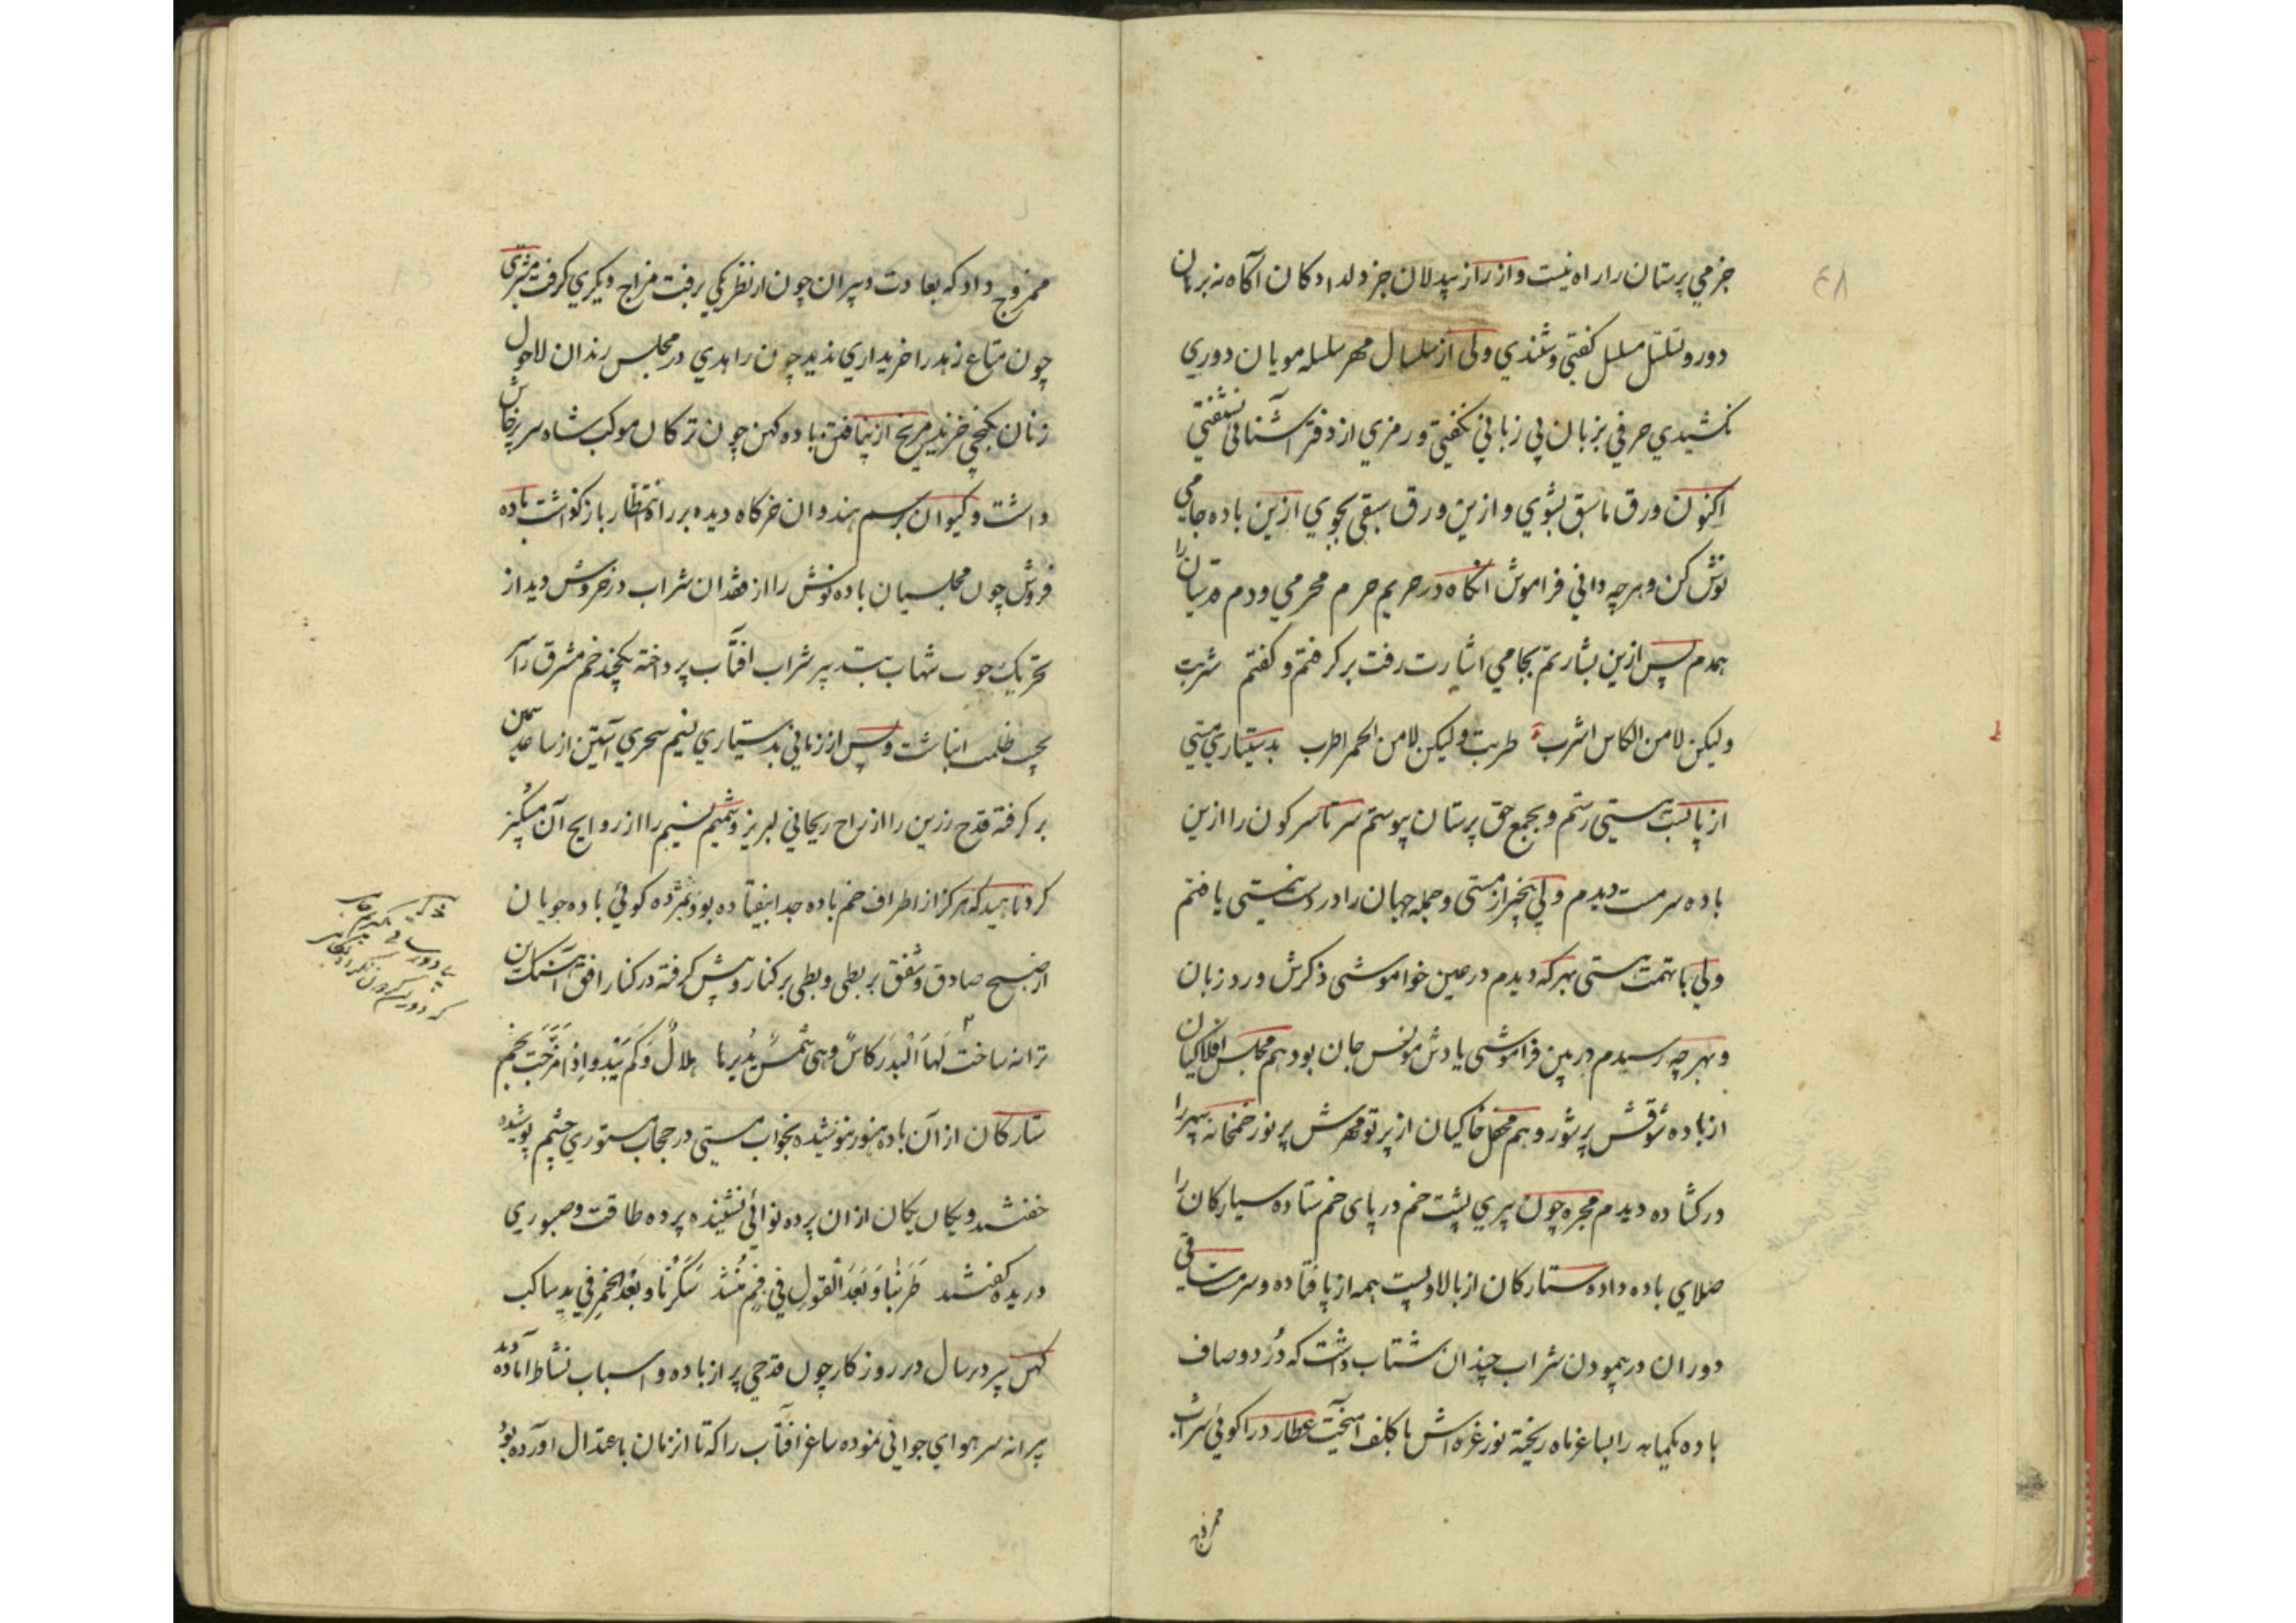 ٤٨
جز می پرستان را راه نیست و از راز بیدلان جز دلدادکان آکاه نه برهان
دور و تسلسل مسلسل کفتی و شندی ولی از سلسال مهر سلسله مویان دوری
نکشیدی حرفی بزبان بی زبانی نکفتی و رمزی از دفتر آشنائی نشنفتی
اکنون ورق ما سبق بشوی و ازین ورق سبقی بجوی ازین باده جامی
نوش کن و هرچه دانی فراموش آنکاه در حریم حرم محرمی و دم قدسیان را
همدم پس ازین بشارتم بجامی اشارت رفت برکرفتم و کفتم شربت
ولیکن لا من الکاس اشرب طربت ولیکن لا من الخمر اطرب بدستیاری مستی
از پا بست هستی رستم و بجمع حق پرستان پیوستم سرتاسر کون را ازین
باده سرمست دیدم ولی بیخبر از مستی و جمله جهان را در دست نیستی یافتم
ولی با تهمت هستی بهر که دیدم در عین خواموشی ذکرش ورد زبان
و بهر چه رسیدم در بین فراموشی یادش مونس جان بود هم مجلس افلاکیان
از باده شوقش پر شور و هم محفل خاکیان از پرتو مهرش پر نور خمخانه سپهر را
در کشاده دیدم مجره چون پیری پشت خم در پای خم ستاده سیارکان را
صلای باده داده ستارکان از بالا و پست همه از پا فتاده و سرمست ساقی
دوران در پیمودن شراب چندان شتاب داشت که درد و صاف
باده یکماهه را بساغر ماه ریخته نور غره اش با کلف آمیخت عطارد را کوئی شراب
ممزوج
ممزوج داد که بعادت دبیران چون از نظر یکی برفت مزاج دیکری کرفت مشتری
چون متاع زهد را خریداری ندید چون زاهدی در مجلس رندان لاحول
زنان بکنجی خزید مریخ از نیافتن باده کهن چون ترکان موکب شاه سر پرخاش
داشت و کیوان برسم هندوان خرکاه دیده بر راه انتظار بازکذاشت باده
فروش چون مجلسیان باده نوش را از فقدان شراب در خروش دید از
تحریک چوب شهاب بتدبیر شراب افتاب پرداخته یکچند خم مشرق را سر
بخس ظلمت انباشت و پس از زمانی بدستیاری نسیم سحری آستین از ساعد سیمین
برکرفته قدح زرین را از راح ریحانی لبریز و شمیم نسیم را از روایح آن مشکبیز
کرد ناهید که هرکز از اطراف خم باده جدا نیفتاده بود بمژده کوئی باده جویان
از صبح صادق و شفق بربطی و بطی برکنار و پیش کرفته در کنار افق آهنک این
ترانه ساخت لها البدر کاس وهی شمس یدیرها هلال وکم یبدو اذا مزجت نجم
ستارکان از آن باده هنوز ننوشیده بخواب مستی در حجاب مستوری چشم پوشیده
خفتند و یکان یکان از ان پرده نوائی نشنیده پرده طاقت و صبوری
دریده کفتند طربنا وبعد القول فی فم منشد سکرنا وبعد الخمر فی ید ساکب
کهن پیر دیر سال دیر روزکار چون قدحی پر از باده و اسباب نشاط آماده دید
پیرانه سر هوای جوانی نموده ساغر افتاب را که تا انزمان باعتدال اورده بود